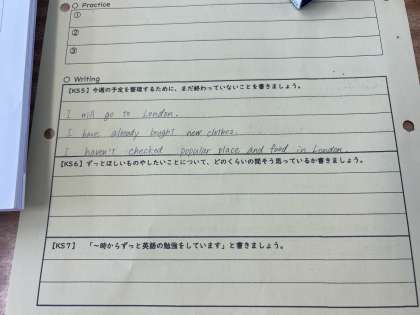 ○ Practice
①
②
③
○ Writing
【KS5】今週の予定を整理するために、まだ終わっていないことを書きましょう。
I will go to London.
I have already bought new clothes.
I haven't checked popular place and food in London.
【KS6】ずっとほしいものやしたいことについて、どのくらいの間そう思っているか書きましょう。
【KS7】 「～時からずっと英語の勉強をしています」と書きましょう。